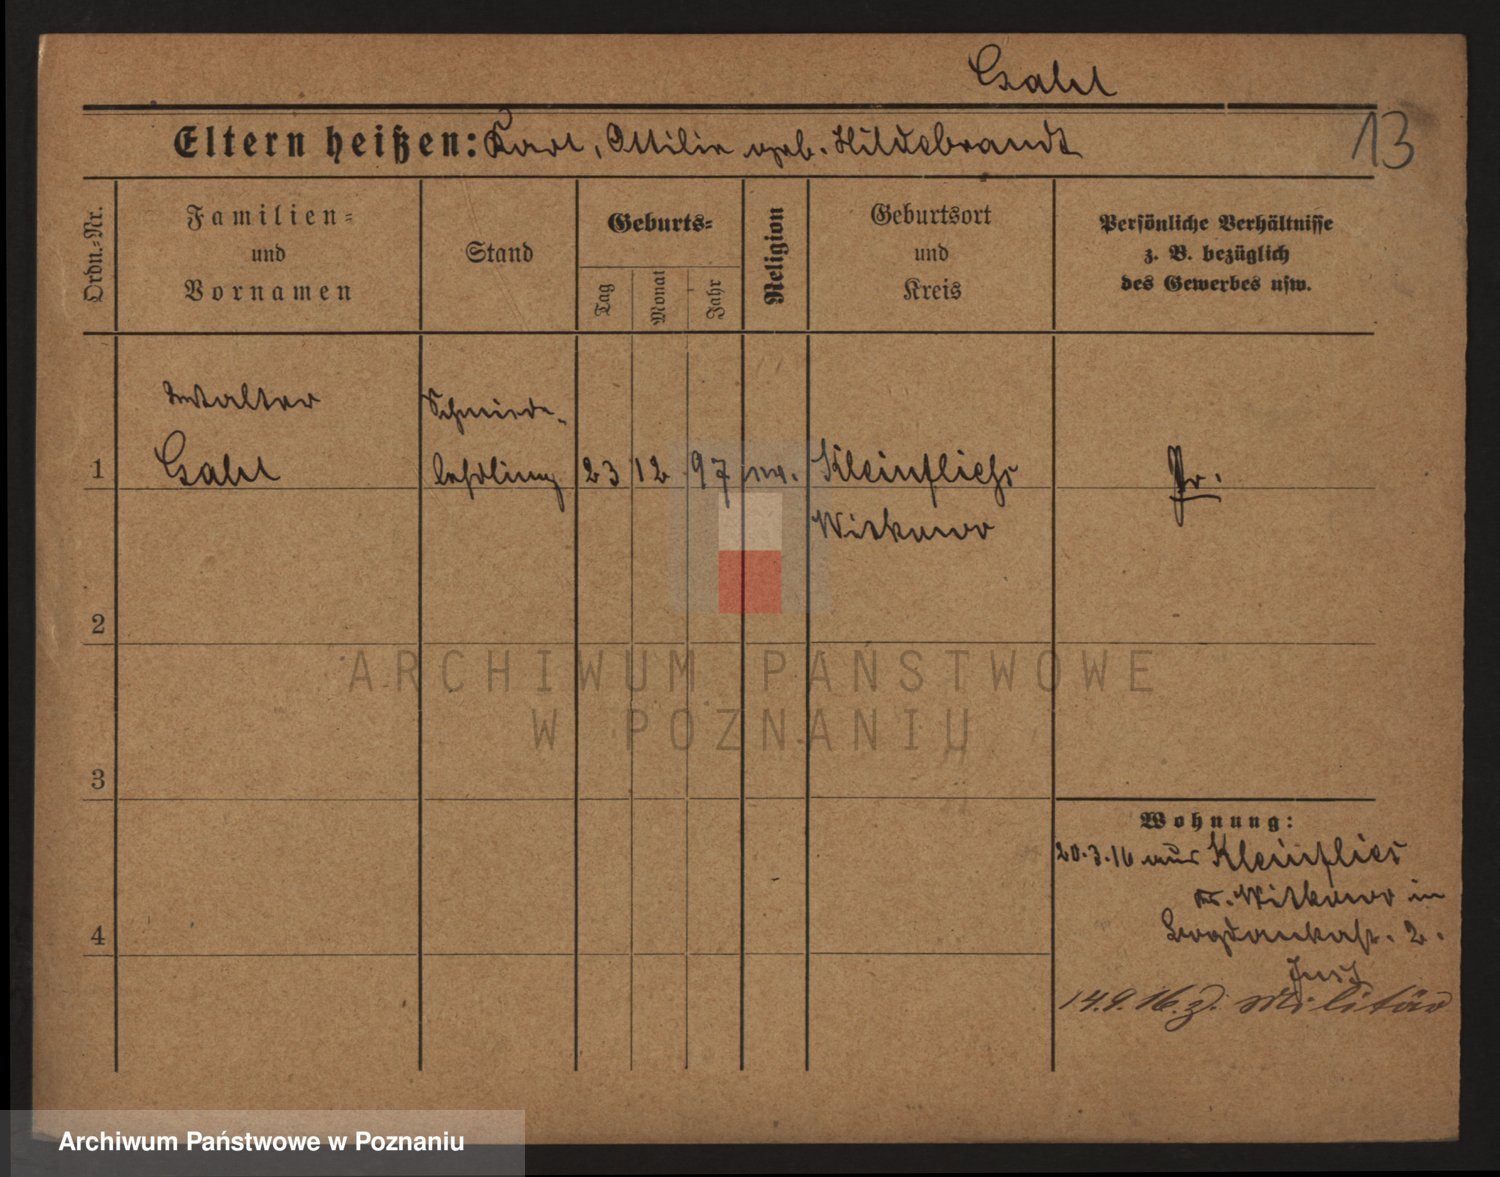 Gahl
Eltern heißen: Karl, Ottilie geb. Hildebrandt
13
Ordn.-Nr.
Familien-
und
Vornamen
Stand
Geburts-
Tag
Monat
Jahr
Religion
Geburtsort
und
Kreis
Persönliche Verhältnisse
z. B. bezüglich
des Gewerbes usw.
Walter
Schmiede-
1 Gahl lehrling 23 12 97 ev. Kleinfliess Pr.
Witkowo
2
3
4
Wohnung:
20.3.16 aus Kleinflies
Kr. Witkowo in
Bogdankastr. 2.
14.9.16. z. Militär
ARCHIWUM PAŃSTWOWE
W POZNANIU
Archiwum Państwowe w Poznaniu